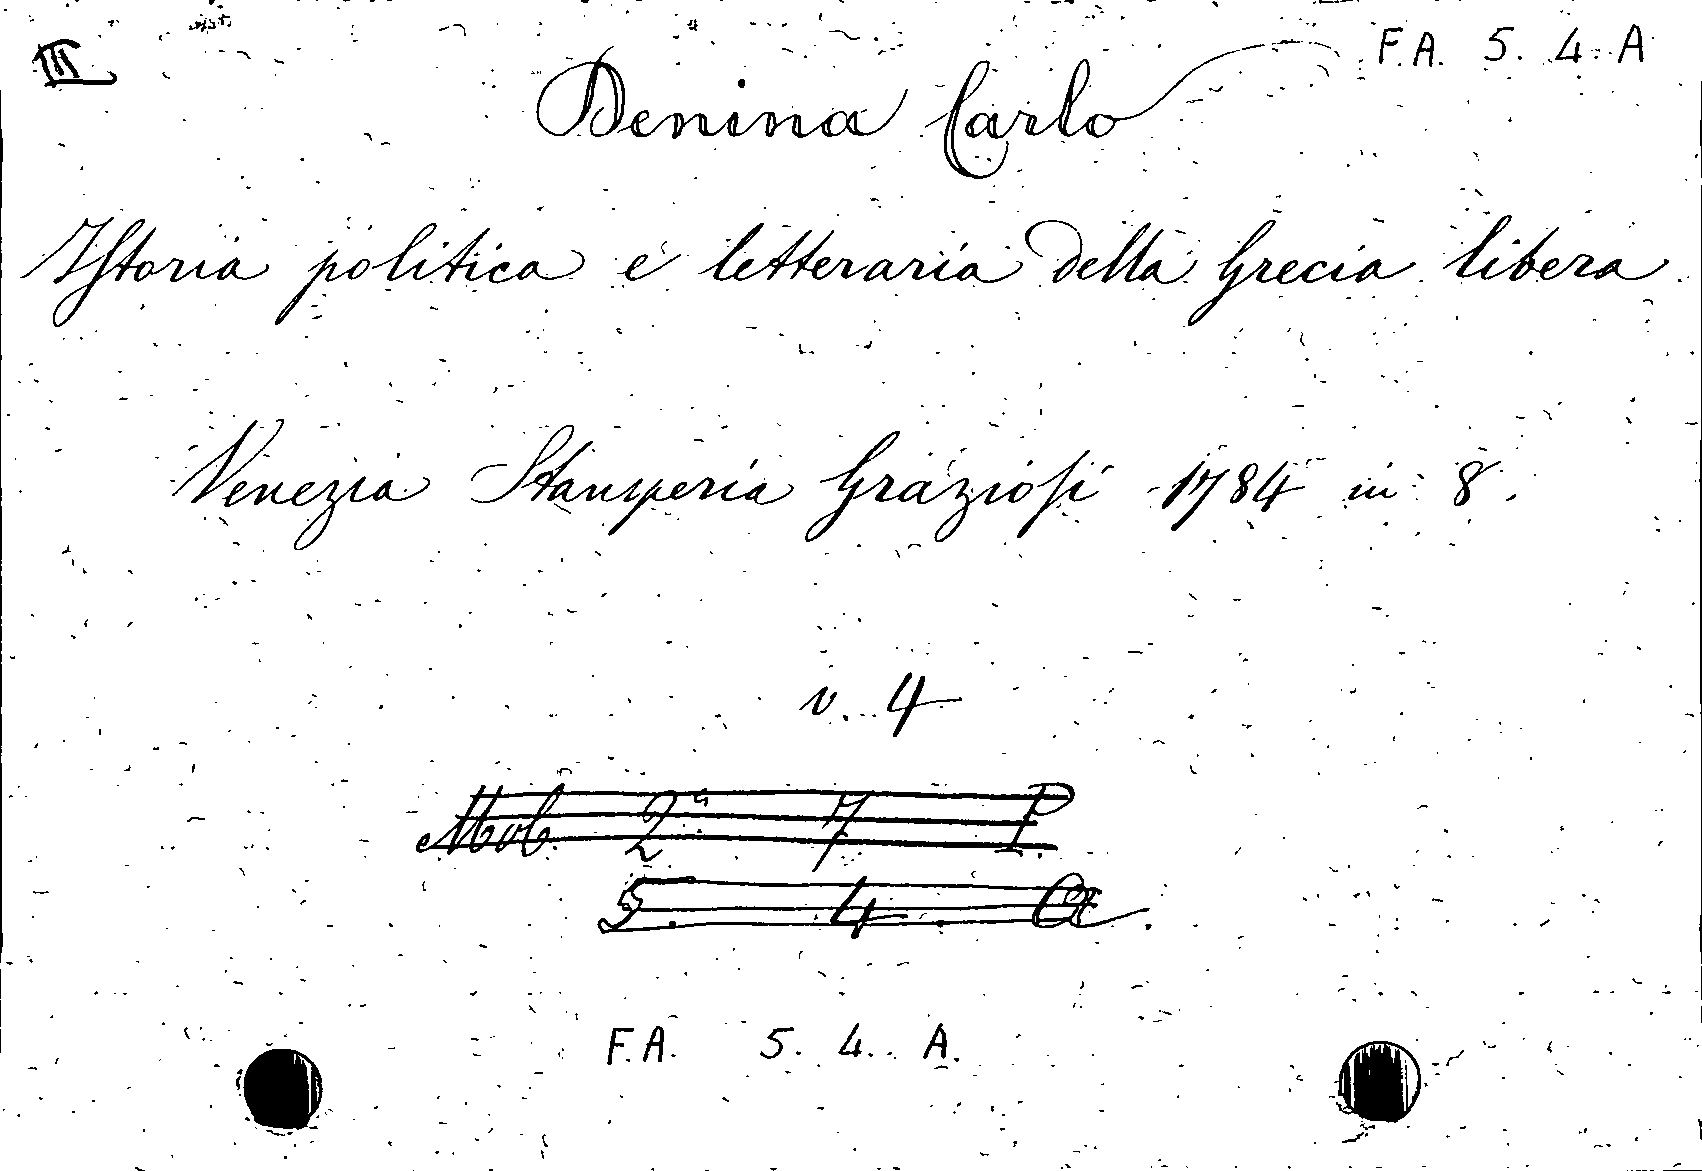 III F.A. 5. 4. A
Denina Carlo
Istoria politica e letteraria della Grecia libera.
Venezia Stamperia Graziosi 1784 in 8.
v. 4
Mob. 2ª 7 P.
5. 4 A.
F.A. 5. 4. A.